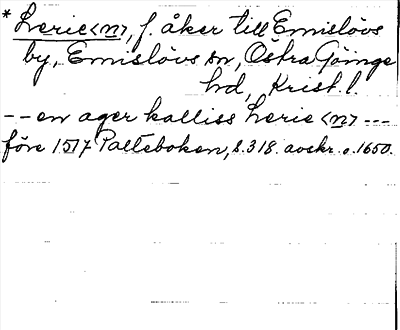 * Lerie<n>, f. åker till Emislövs
by, Emislövs sn, Östra Göinge
hd, Krist. l.
-- en ager kalliss Lerie <n> ---
före 1517 Palteboken, s. 318. avskr. o. 1650.